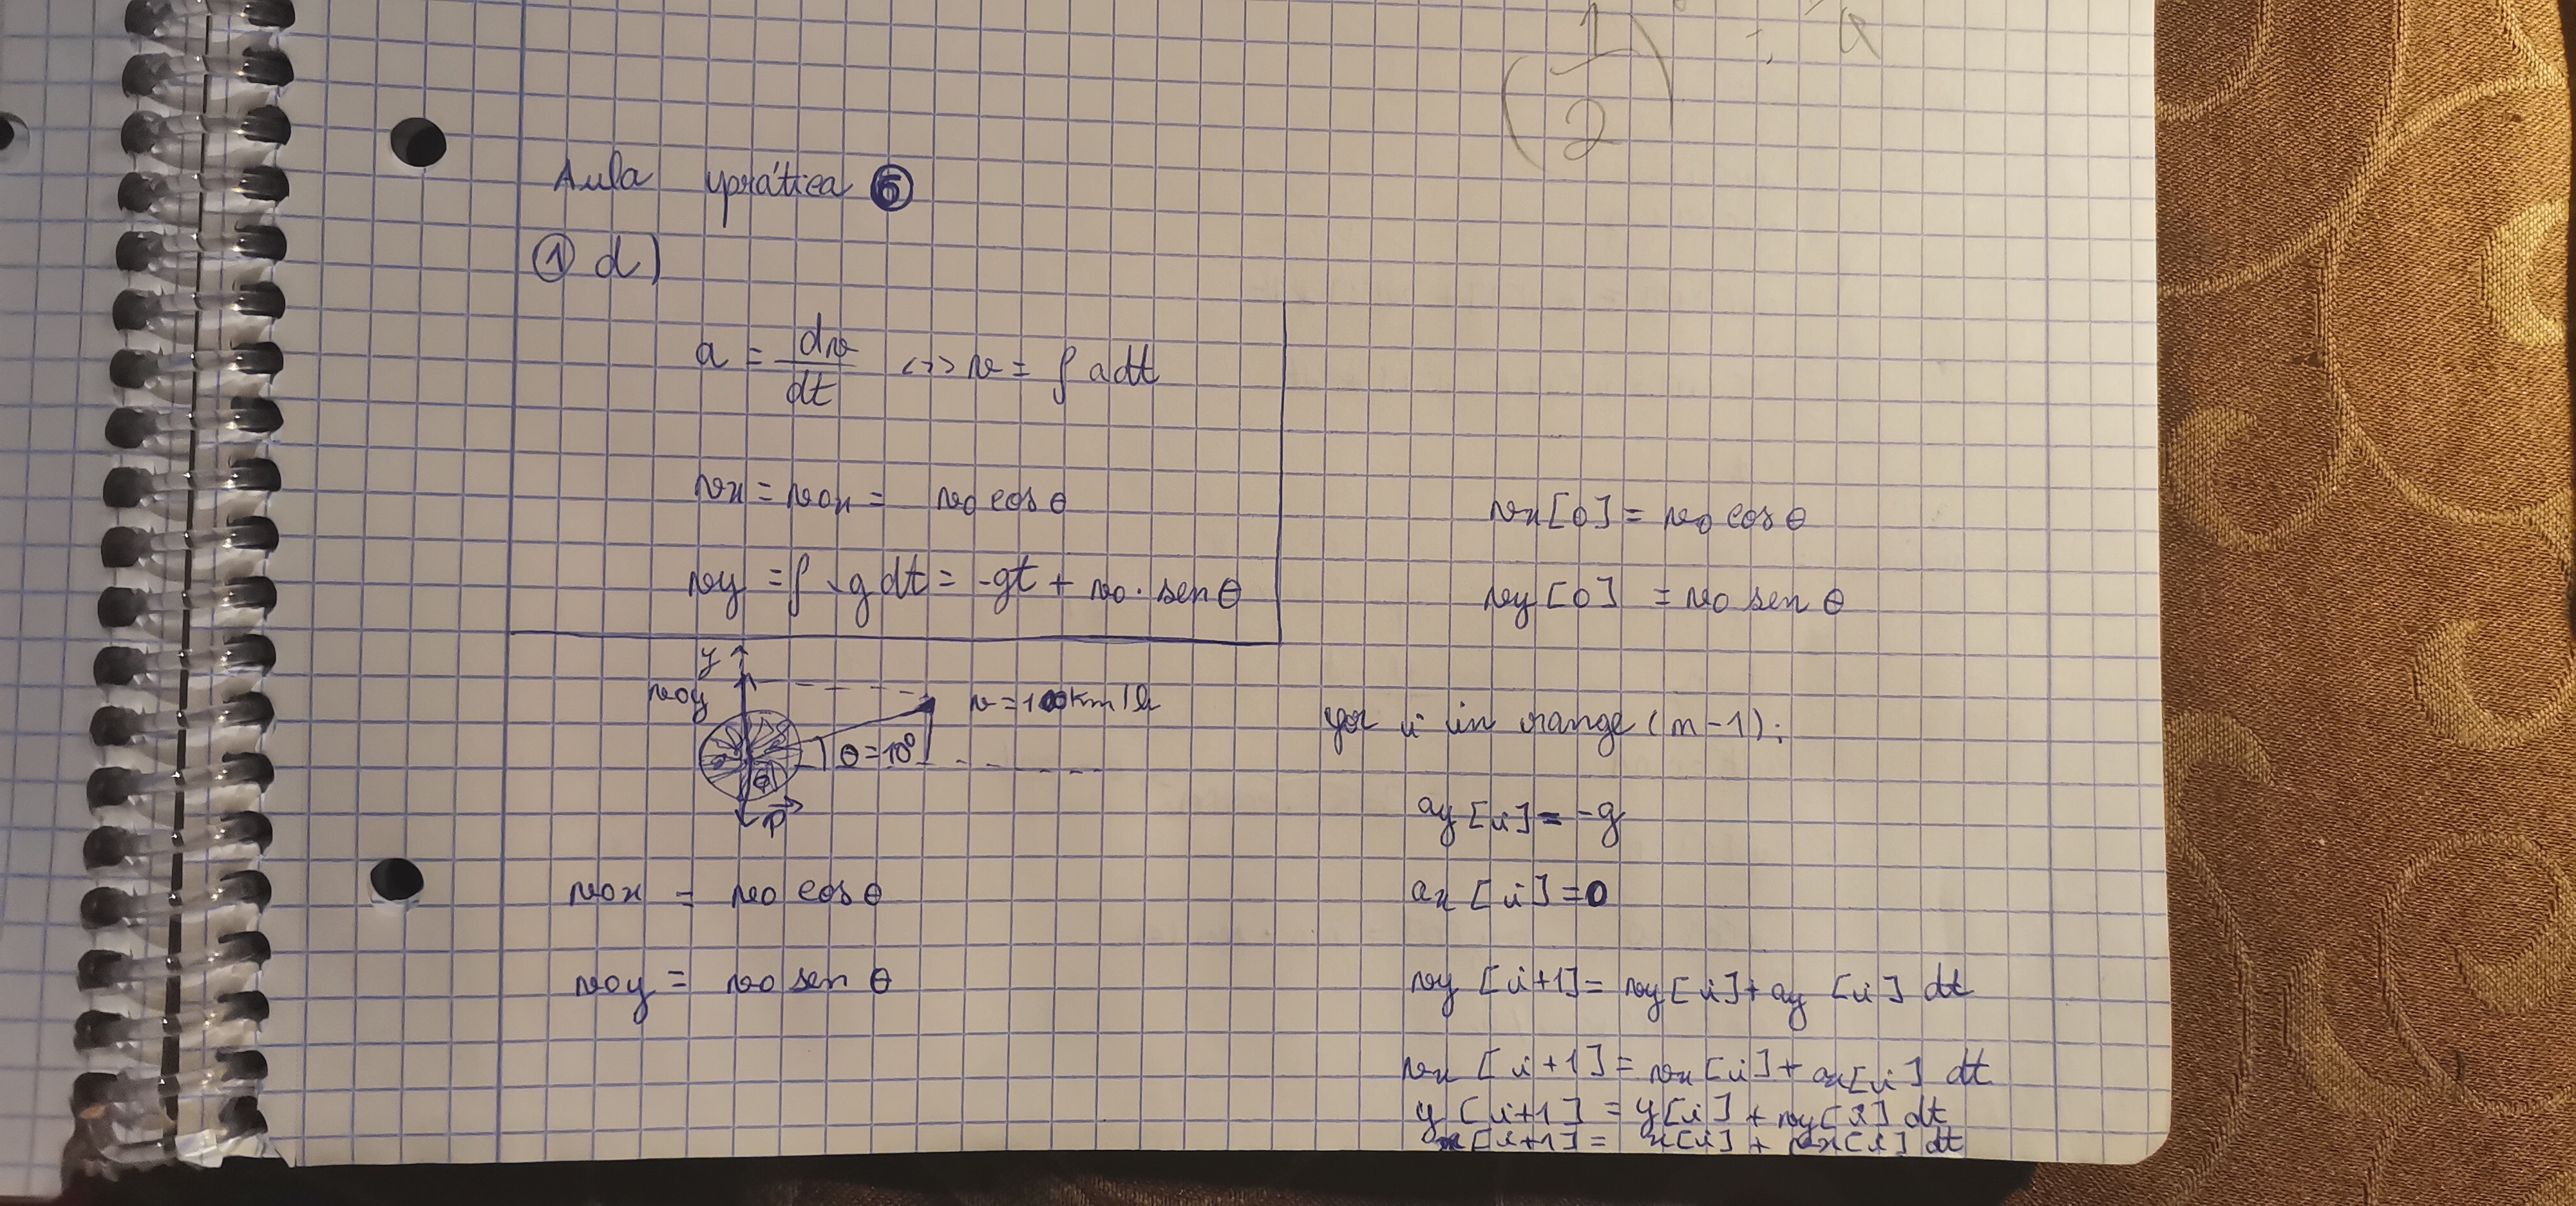 (1/2) = a
Aula prática 5
① d)
a = dv/dt <=> v = ∫ a dt
vx = v0x = v0 cos θ
vy = ∫ -g dt = -gt + v0 · sen θ
y
v0y
v = 100 km/h
θ = 10°
P
v0x = v0 cos θ
v0y = v0 sen θ
vx[0] = v0 cos θ
vy[0] = v0 sen θ
for i in range (n-1):
ay[i] = -g
ax[i] = 0
vy[i+1] = vy[i] + ay[i] dt
vx[i+1] = vx[i] + ax[i] dt
y[i+1] = y[i] + vy[i] dt
x[i+1] = x[i] + vx[i] dt